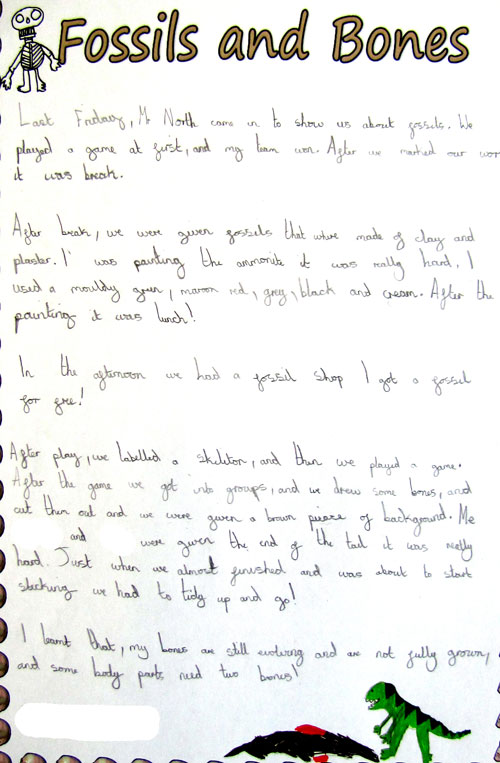 Fossils and Bones
Last Friday, Mr North came in to show us about fossils. We
played a game at first, and my team won. After we marked our wor
it was break.
After break, we were given fossels that were made of clay and
plaster. I was painting the ammonite it was really hard. I
used a mouldy green, maroon red, grey, black and cream. After the
painting it was lunch!
In the afternoon we had a fossil shop I got a fossil
for free!
After play, we labelled a skeleton, and then we played a game.
After the game we got into groups, and we drew some bones, and
cut them out and we were given a brown of background. Me
and were given the end of the tail it was really
hard. Just when we almost finished and was about to start
sticking we had to tidy up and go!
I learnt that, my bones are still evolving and are not fully grown,
and some body parts need two bones!